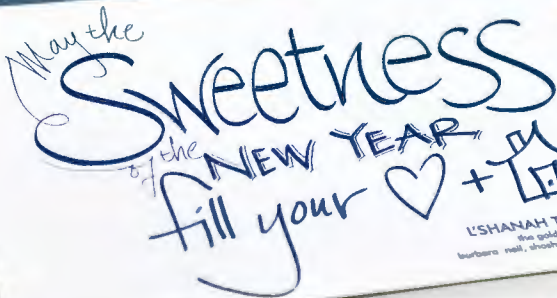 May the
Sweetness
of the NEW YEAR
fill your ♡ +
L'SHANAH
the
barbara neil,